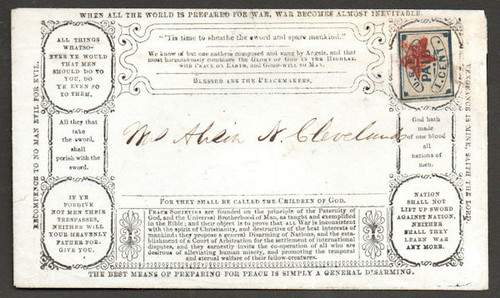 WHEN ALL THE WORLD IS PREPARED FOR WAR, WAR BECOMES ALMOST INEVITABLE.
"'Tis time to sheathe the sword and spare mankind."
We know of but one anthem composed and sung by Angels, and that
most harmoniously combines the GLORY OF GOD IN THE HIGHEST,
with PEACE ON EARTH, and GOOD-WILL TO MAN.
BLESSED ARE THE PEACEMAKERS,
ALL THINGS
WHATSO-
EVER YE WOULD
THAT MEN
SHOULD DO TO
YOU, DO
YE EVEN SO
TO THEM.
PAID
1 CENT
All they that
take the
sword, shall
perish with the
sword.
God hath
made
of one blood
all
nations of
men.
Cleveland
IF YE
FORGIVE
NOT MEN THEIR
TRESPASSES,
NEITHER WILL
YOUR HEAVENLY
FATHER FOR-
GIVE YOU.
NATION
SHALL NOT
LIFT UP SWORD
AGAINST NATION,
NEITHER
SHALL THEY
LEARN WAR
ANY MORE.
FOR THEY SHALL BE CALLED THE CHILDREN OF GOD.
PEACE SOCIETIES are founded on the principle of the Paternity of
God, and the Universal Brotherhood of Man, as taught and exemplified
in the Bible; and their object is to prove that ALL War is inconsistent
with the spirit of Christianity, and destructive of the best interests of
mankind: they propose a general Disarming of Nations, and the esta-
blishment of a Court of Arbitration for the settlement of international
disputes, and they earnestly invite the co-operation of all who are
desirous of alleviating human misery, and promoting the temporal
and eternal welfare of their fellow-creatures.
RECOMPENCE TO NO MAN EVIL FOR EVIL.
VENGEANCE IS MINE, SAITH THE LORD.
THE BEST MEANS OF PREPARING FOR PEACE IS SIMPLY A GENERAL DISARMING.